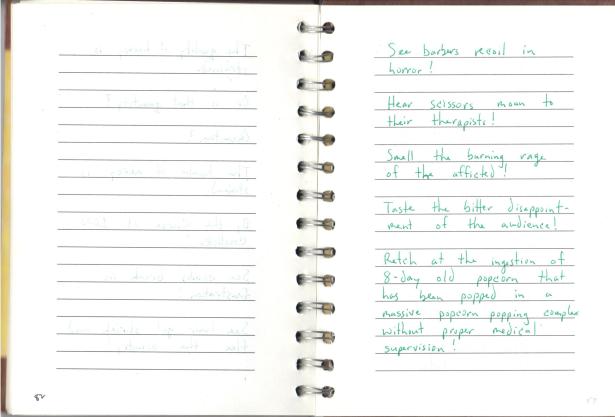 See barbers recoil in
horror!
Hear scissors moan to
their therapists!
Smell the burning rage
of the afficted!
Taste the bitter disappoint-
ment of the audience!
Retch at the ingestion of
8-day old popcorn that
has been popped in a
massive popcorn popping complex
without proper medical
supervision!